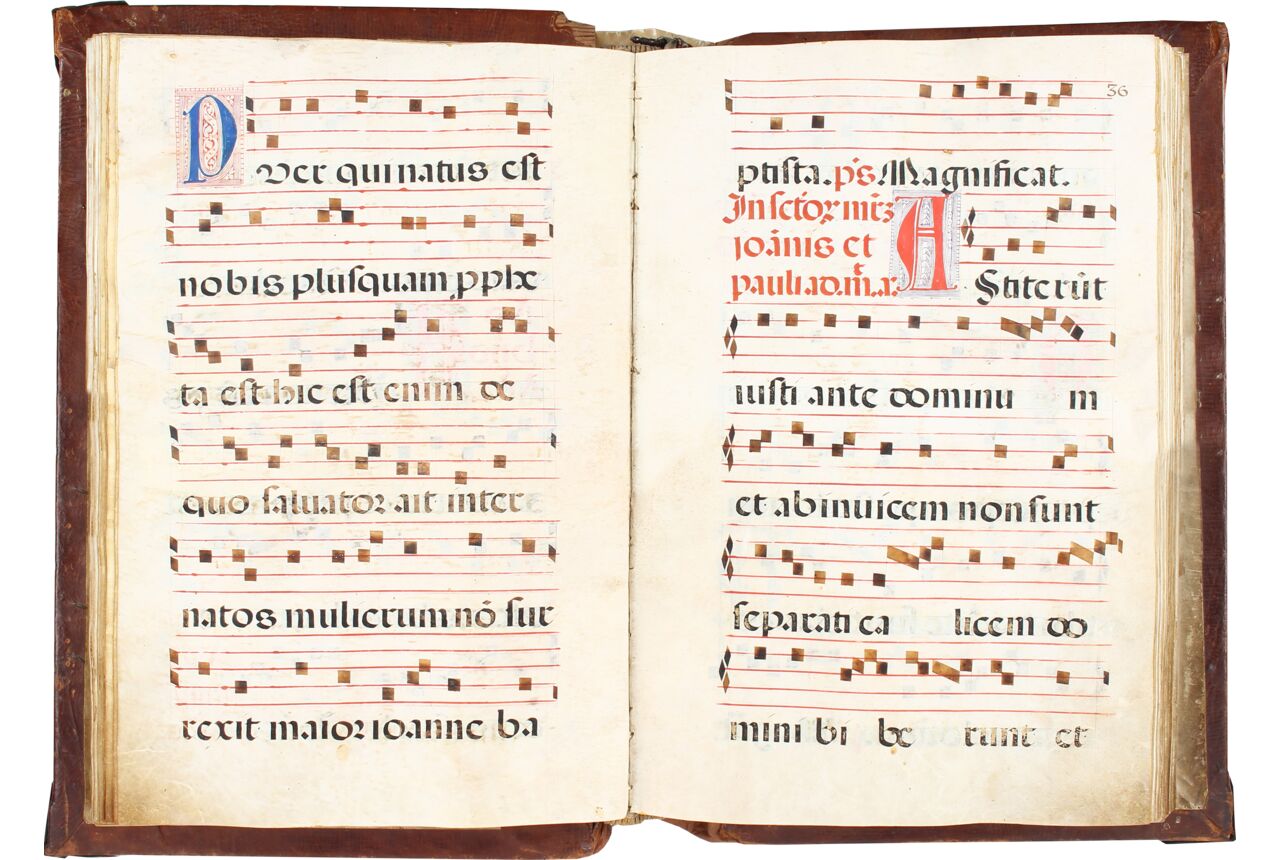 PVer qui natus est
nobis plusquam pphe
ta est hic est enim de
quo saluator ait inter
natos mulierum nō sur
rexit maior ioanne ba
36
ptista. ps. Magnificat.
In sctōꝝ mr̄ꝫ
ioānis et
pauli ad. m̄. a:
AStiterūt
iusti ante dominu m
et ab inuicem non sunt
separati ca licem do
mini bi be runt et